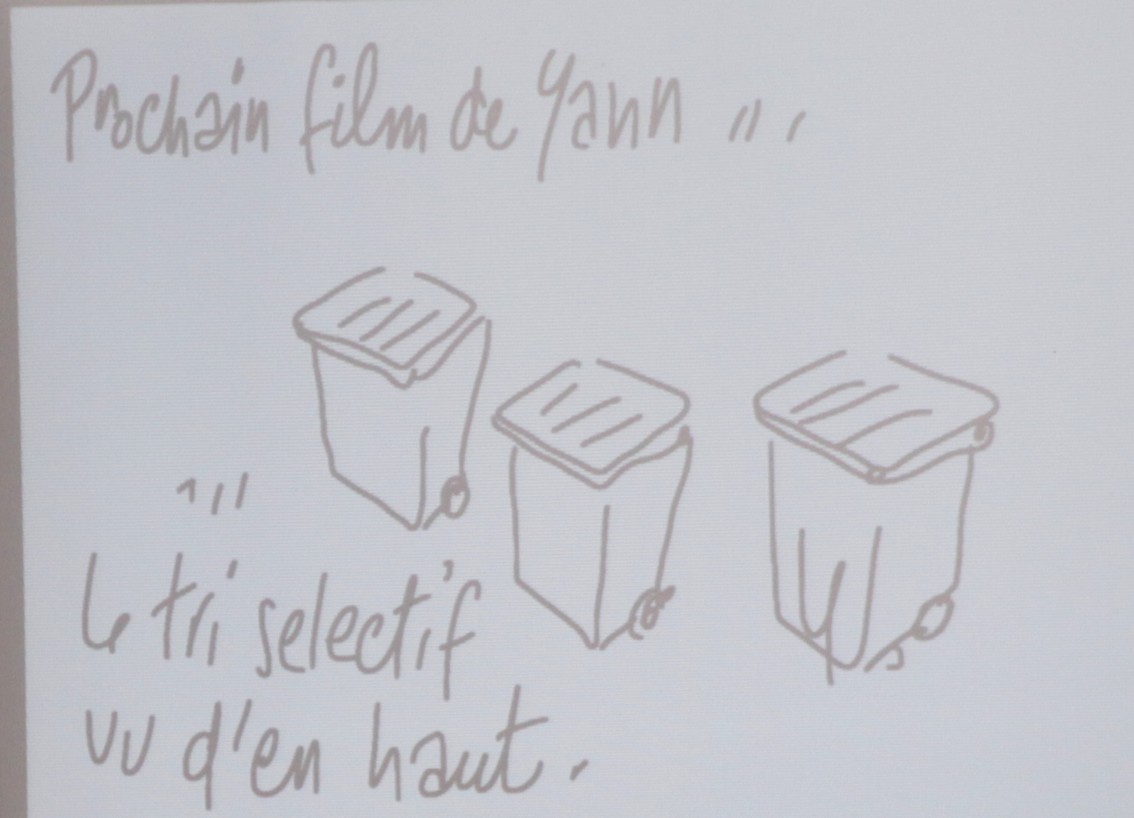 Prochain film de Yann ...
... 
Le tri selectif
vu d'en haut.